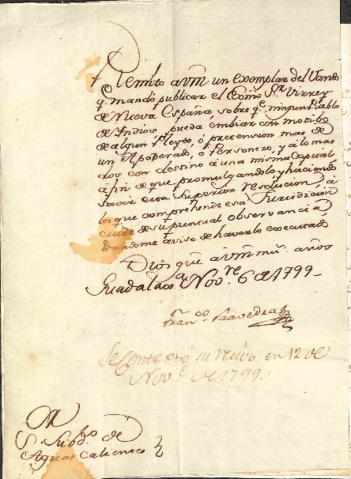 Remito a vm un exemplar del Vando
q. mandó publicar el Exmo Sr. Virrey
de Nueva España, sobre qe. ningun Pueblo
de Indios, pueda embiar con motibo
de algun Pleyto, o pretension mas de
un Apoderado, o Personero, y a lo mas
dos con destino á una misma Capital
á fin de que promulgandolo, y haciendo
savér esta Superior resolucion, á
los que comprehende esa Jurisdicion
cuide de su puntual observancia
dandome aviso de haverlo executado.
Dios gue. a vm ms. años
Guadalaxa. Nove. 6 de 1799.
Franco. Saavedra
Se contextó su recivo en 12 de
Nove. de 1799.
Sr. Subdo. de
Aguas calientes